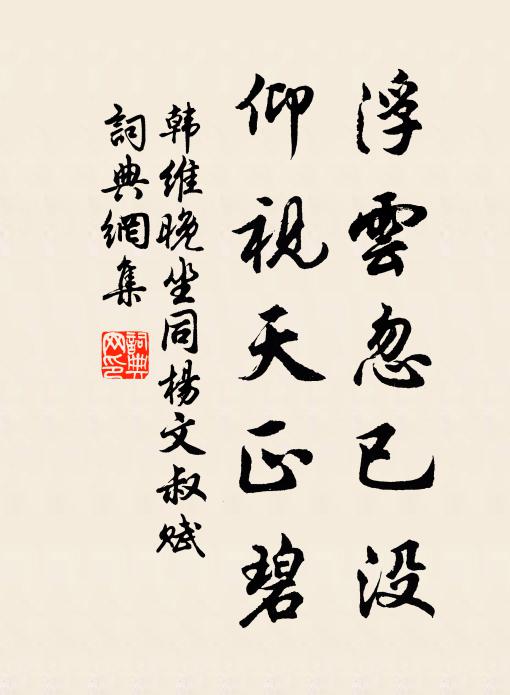 浮雲忽已没
仰視天正碧
韩維晚坐同楊文叔赋
詞典網集
詞典网印